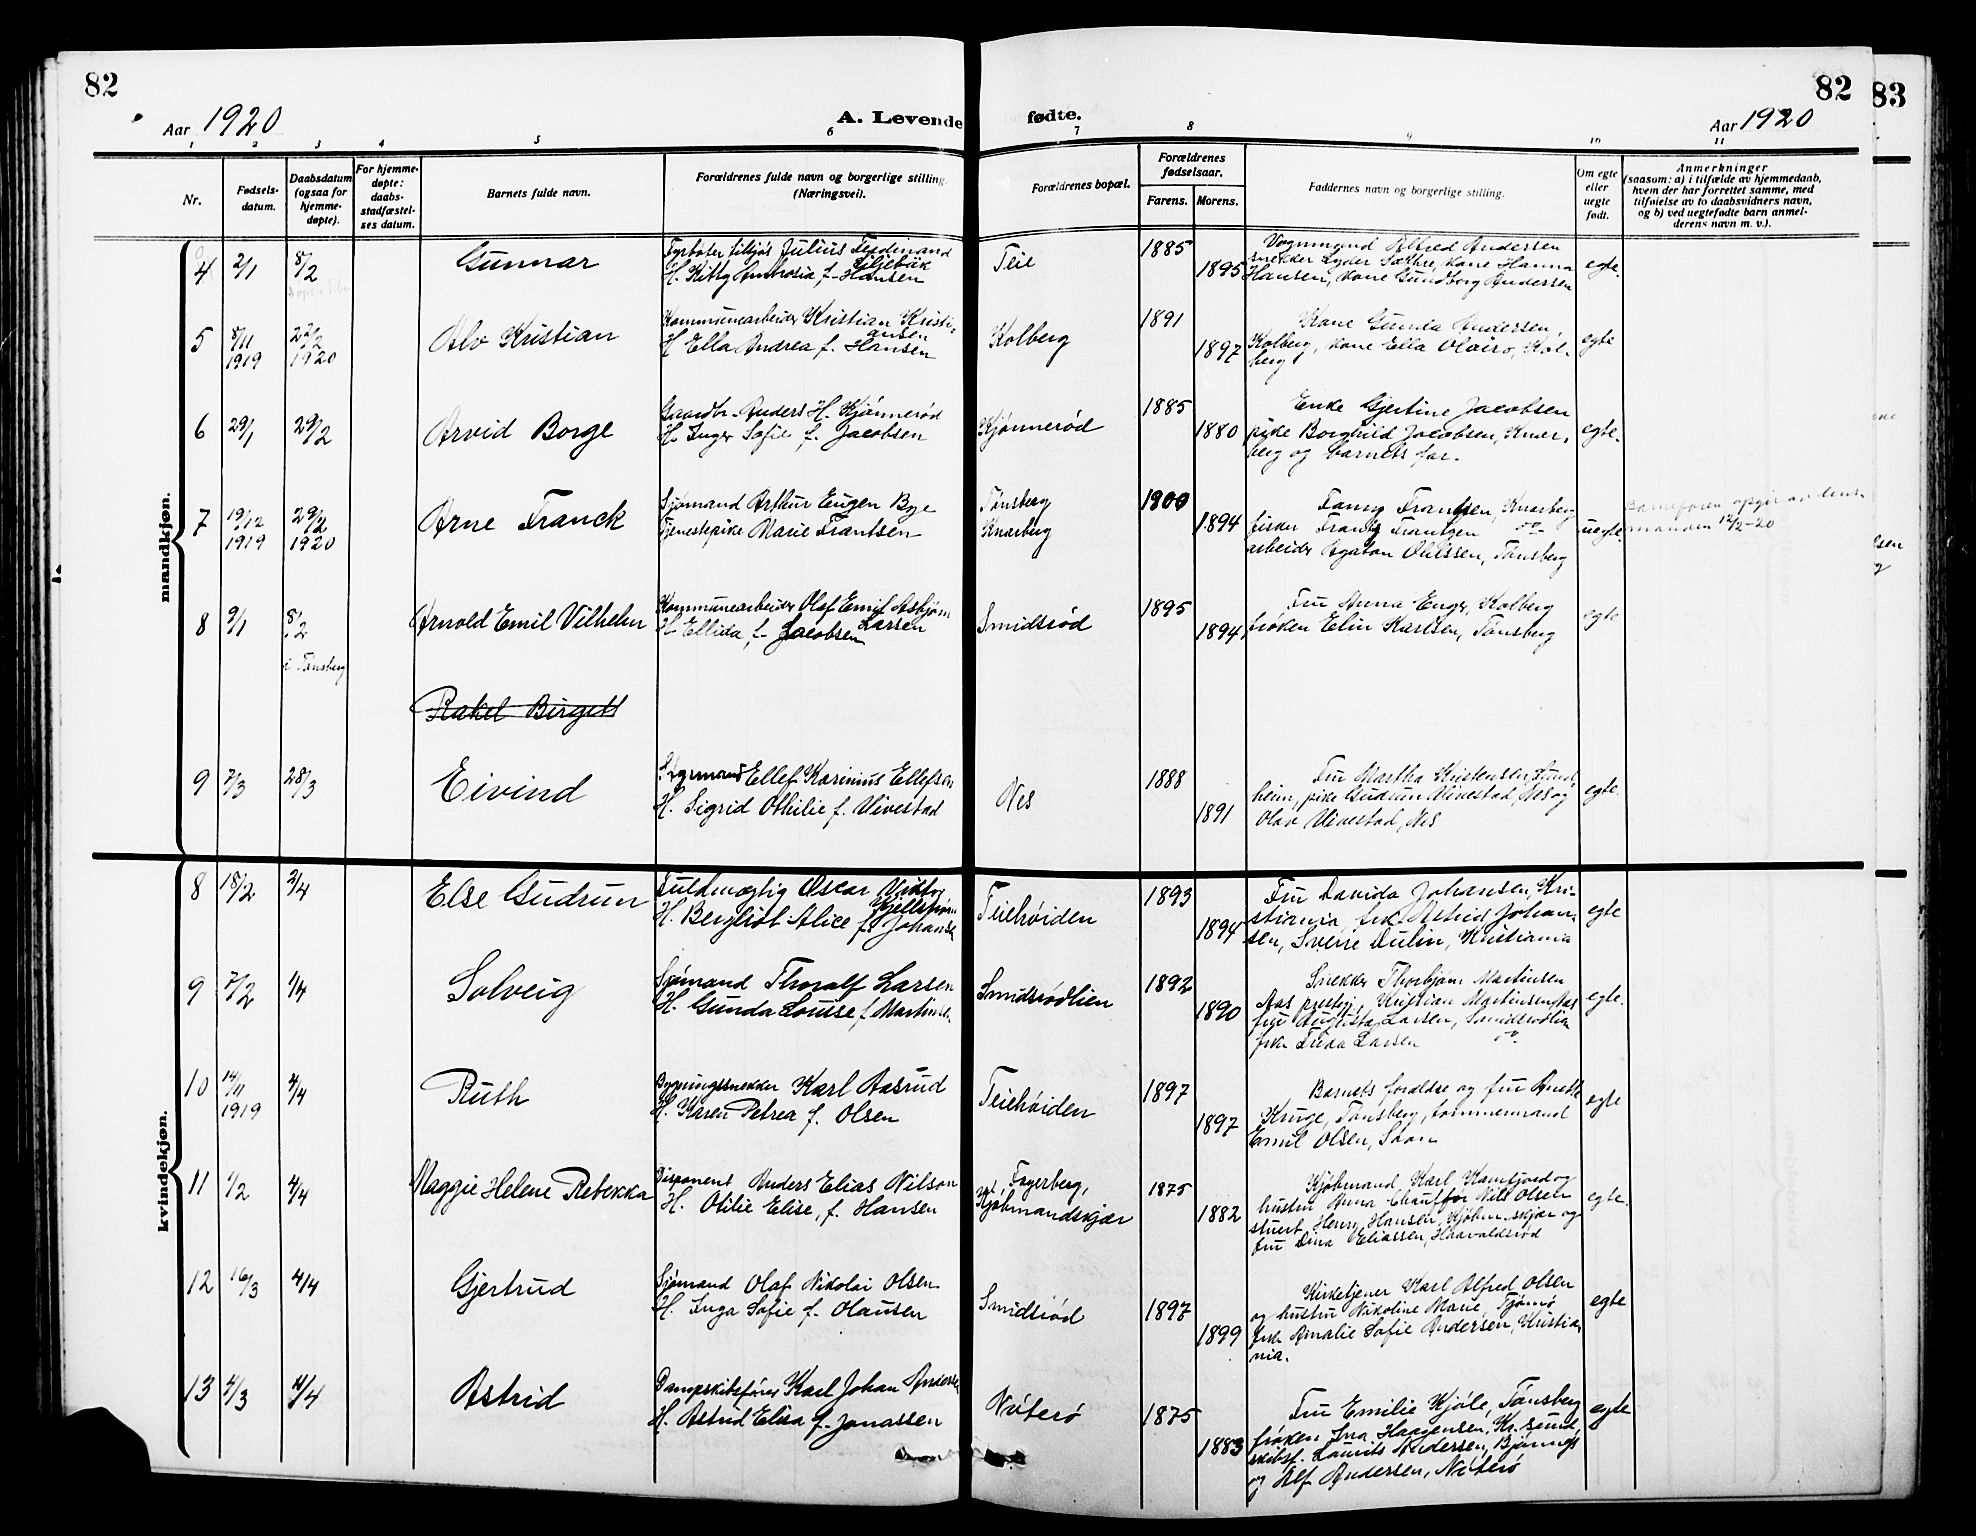 82
82
83
Aar 1920
A. Levende fødte.
Aar 1920
1 2 3 4 5 6 7 8 9 10 11
Nr.
Fødsels-
datum.
Daabsdatum
(ogsaa for
hjemme-
døpte).
For hjemme-
døpte:
daabs-
stadfæstel-
ses datum.
Barnets fulde navn.
Forældrenes fulde navn og borgerlige stilling.
(Næringsvei).
Forældrenes bopæl.
Forældrenes
fødselsaar.
Farens. Morens.
Faddernes navn og borgerlige stilling.
Om egte
eller
uegte
født.
Anmerkninger
(saasom: a) i tilfælde av hjemmedaab,
hvem der har forrettet samme, med
tilføielse av to daabsvidners navn,
og b) ved uegtefødte barn anmel-
derens navn m. v.).
mandkjøn.
4 2/1 8/2 Gunnar
Fyrbøter Julius Ferdinand
Liljebäk
H. Kitty Ambrosia f. Hansen
Teie 1885 1895
Vognmand Alfred Andersen
snekker Lyder Sæthre, kone Hanna
Hansen, kone Gundborg Andersen
egte.
5 8/11 1919 22/2 1920 Alv Kristian
Kommunearbeider Kristian Kristi-
ansen
H. Ella Andrea f. Hansen
Kolberg 1891 1897
Kone Gunda Andersen,
Kolberg, kone Ella Kol-
berg
egte
6 29/1 29/2 Arvid Borge
Gaardbr. Anders H. Kjønnerød
H. Inger Sofie f. Jacobsen
Kjønnerød 1885 1880
Enke Gjertine Jacobsen
pike Borghild Jacobsen, Knar-
berg og barnets far.
egte.
7 19/12 1919 29/2 1920 Arne Franck
Sjømand Arthur Eugen Bye
Tjenestepike Marie Frantsen
Tønsberg
Knarberg
1900 1894
Fanny Frantsen, Knarberg
fisker Frantz Frantzen
arbeider Agaton Olilssen, Tønsberg
uegte.
Barnefaren opgit av lens-
manden 12/2-20
8 9/1 8/2 Arnold Emil Vilhelm
i Tønsberg
Kommunearbeider Olaf Emil Asbjørn
Larsen
H. Ellida f. Jacobsen
Smidsrød 1895 1894
Fru Anna Enger, Kolberg
frøken Elin Karlsen, Tønsberg
egte
Rakel Birgett
9 7/3 28/3 Eivind
Ellef Karinius Ellefsen
H. Sigrid Othilie f. Ulvestad
Nes 1888 1891
Fru Martha Kristensen, Lund
heim, pike Gudrun Ulvestad, Nes og
Olav Ulvestad, Nes
egte.
kvindekjøn.
8 18/2 3/4 Else Gudrun
Fuldmægtig Oscar Viktor
Kjellstrøm
H. Bergliot Alice f. Johansen
Teiehøiden 1893 1894
Fru Davida Johansen, Kri-
stiania, frk. Astrid Johan-
sen, Sverre Dulin, Kristiania
egte
9 7/2 1/4 Solveig
Sjømand Thoralf Larsen
H. Gunda Louise f. Martinse
Smidsrødlien 1892 1890
Snekker Thorbjørn Martinsen
Aas, Kristian Martinsen, Aas
fru Augusta Larsen, Smidsrødlien
frk. Frida Larsen
egte.
10 14/11 1919 4/4 Ruth
Bygningssnekker Karl Aasrud
H. Karen Petrea f. Olsen
Teiehøiden 1897 1897
Barnets forældre og fru
Kruge, Tønsberg, tømmermand
Emil Olsen, Soon
egte
11 1/2 4/4 Maggie Helene Rebekka
Disponent Anders Elias Nilson
H. Otilie Elise, f. Hansen
Fagerberg,
Kjøbmandskjær
1875 1882
Kjøbmand Karl Kamfjord og
hustru Anna Chauffør Nils Olsen
stuert Henry Hansen, Kjøbm.skjær og
fru Dina Eliassen, Haavaldsrød
egte.
12 16/3 4/4 Gjertrud
Sjømand Olaf Nikolai Olsen
H. Inga Sofie f. Olausen
Smidsrød 1897 1899
Kirketjener Karl Alfred Olsen
og hustru Nikoline Marie, Tjømø
frk. Amalie Sofie Andersen, Kristia-
nia.
egte
13 4/3 4/4 Astrid
Dampskibsfører Karl Johan Anderse
H. Astrid Elisa f. Jonassen
Nøterø 1875 1883
Fru Emilie Kjøle, Tønsberg
frøken Ina Haagensen, Kr. sund,
skibsf. Laurits Andersen, Bjønnes
og Alf Andersen, Nøterø
egte